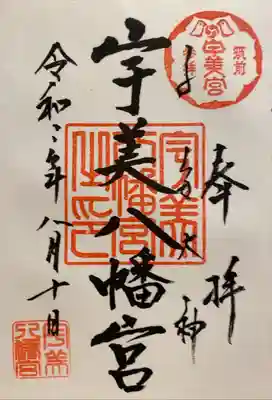 奉拝
筑前
宇美宮
大神
宇美八幡宮
宇美
八幡宮
之印
令和年八月十日
宇美
八幡宮